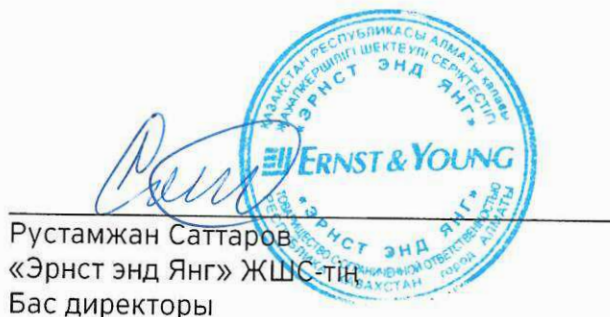 ҚАЗАҚСТАН РЕСПУБЛИКАСЫ АЛМАТЫ қаласы
ЖАУАПКЕРШІЛІГІ ШЕКТЕУЛІ СЕРІКТЕСТІГІ
«ЭРНСТ ЭНД ЯНГ»
ERNST & YOUNG
«ЭРНСТ ЭНД ЯНГ»
ТОВАРИЩЕСТВО С ОГРАНИЧЕННОЙ ОТВЕТСТВЕННОСТЬЮ
РЕСПУБЛИКА КАЗАХСТАН город АЛМАТЫ
Рустамжан Саттаров
«Эрнст энд Янг» ЖШС-тің
Бас директоры